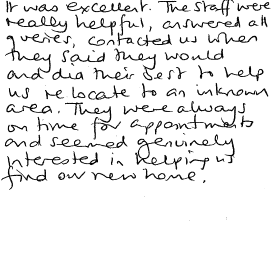 It was excellent. The staff were
really helpful, answered all
queries, contacted us when
they said they would
and did their best to help
us relocate to an inknown
area. They were always
on time for appointments
and seemed genuinely
interested in helping us
find our new home.